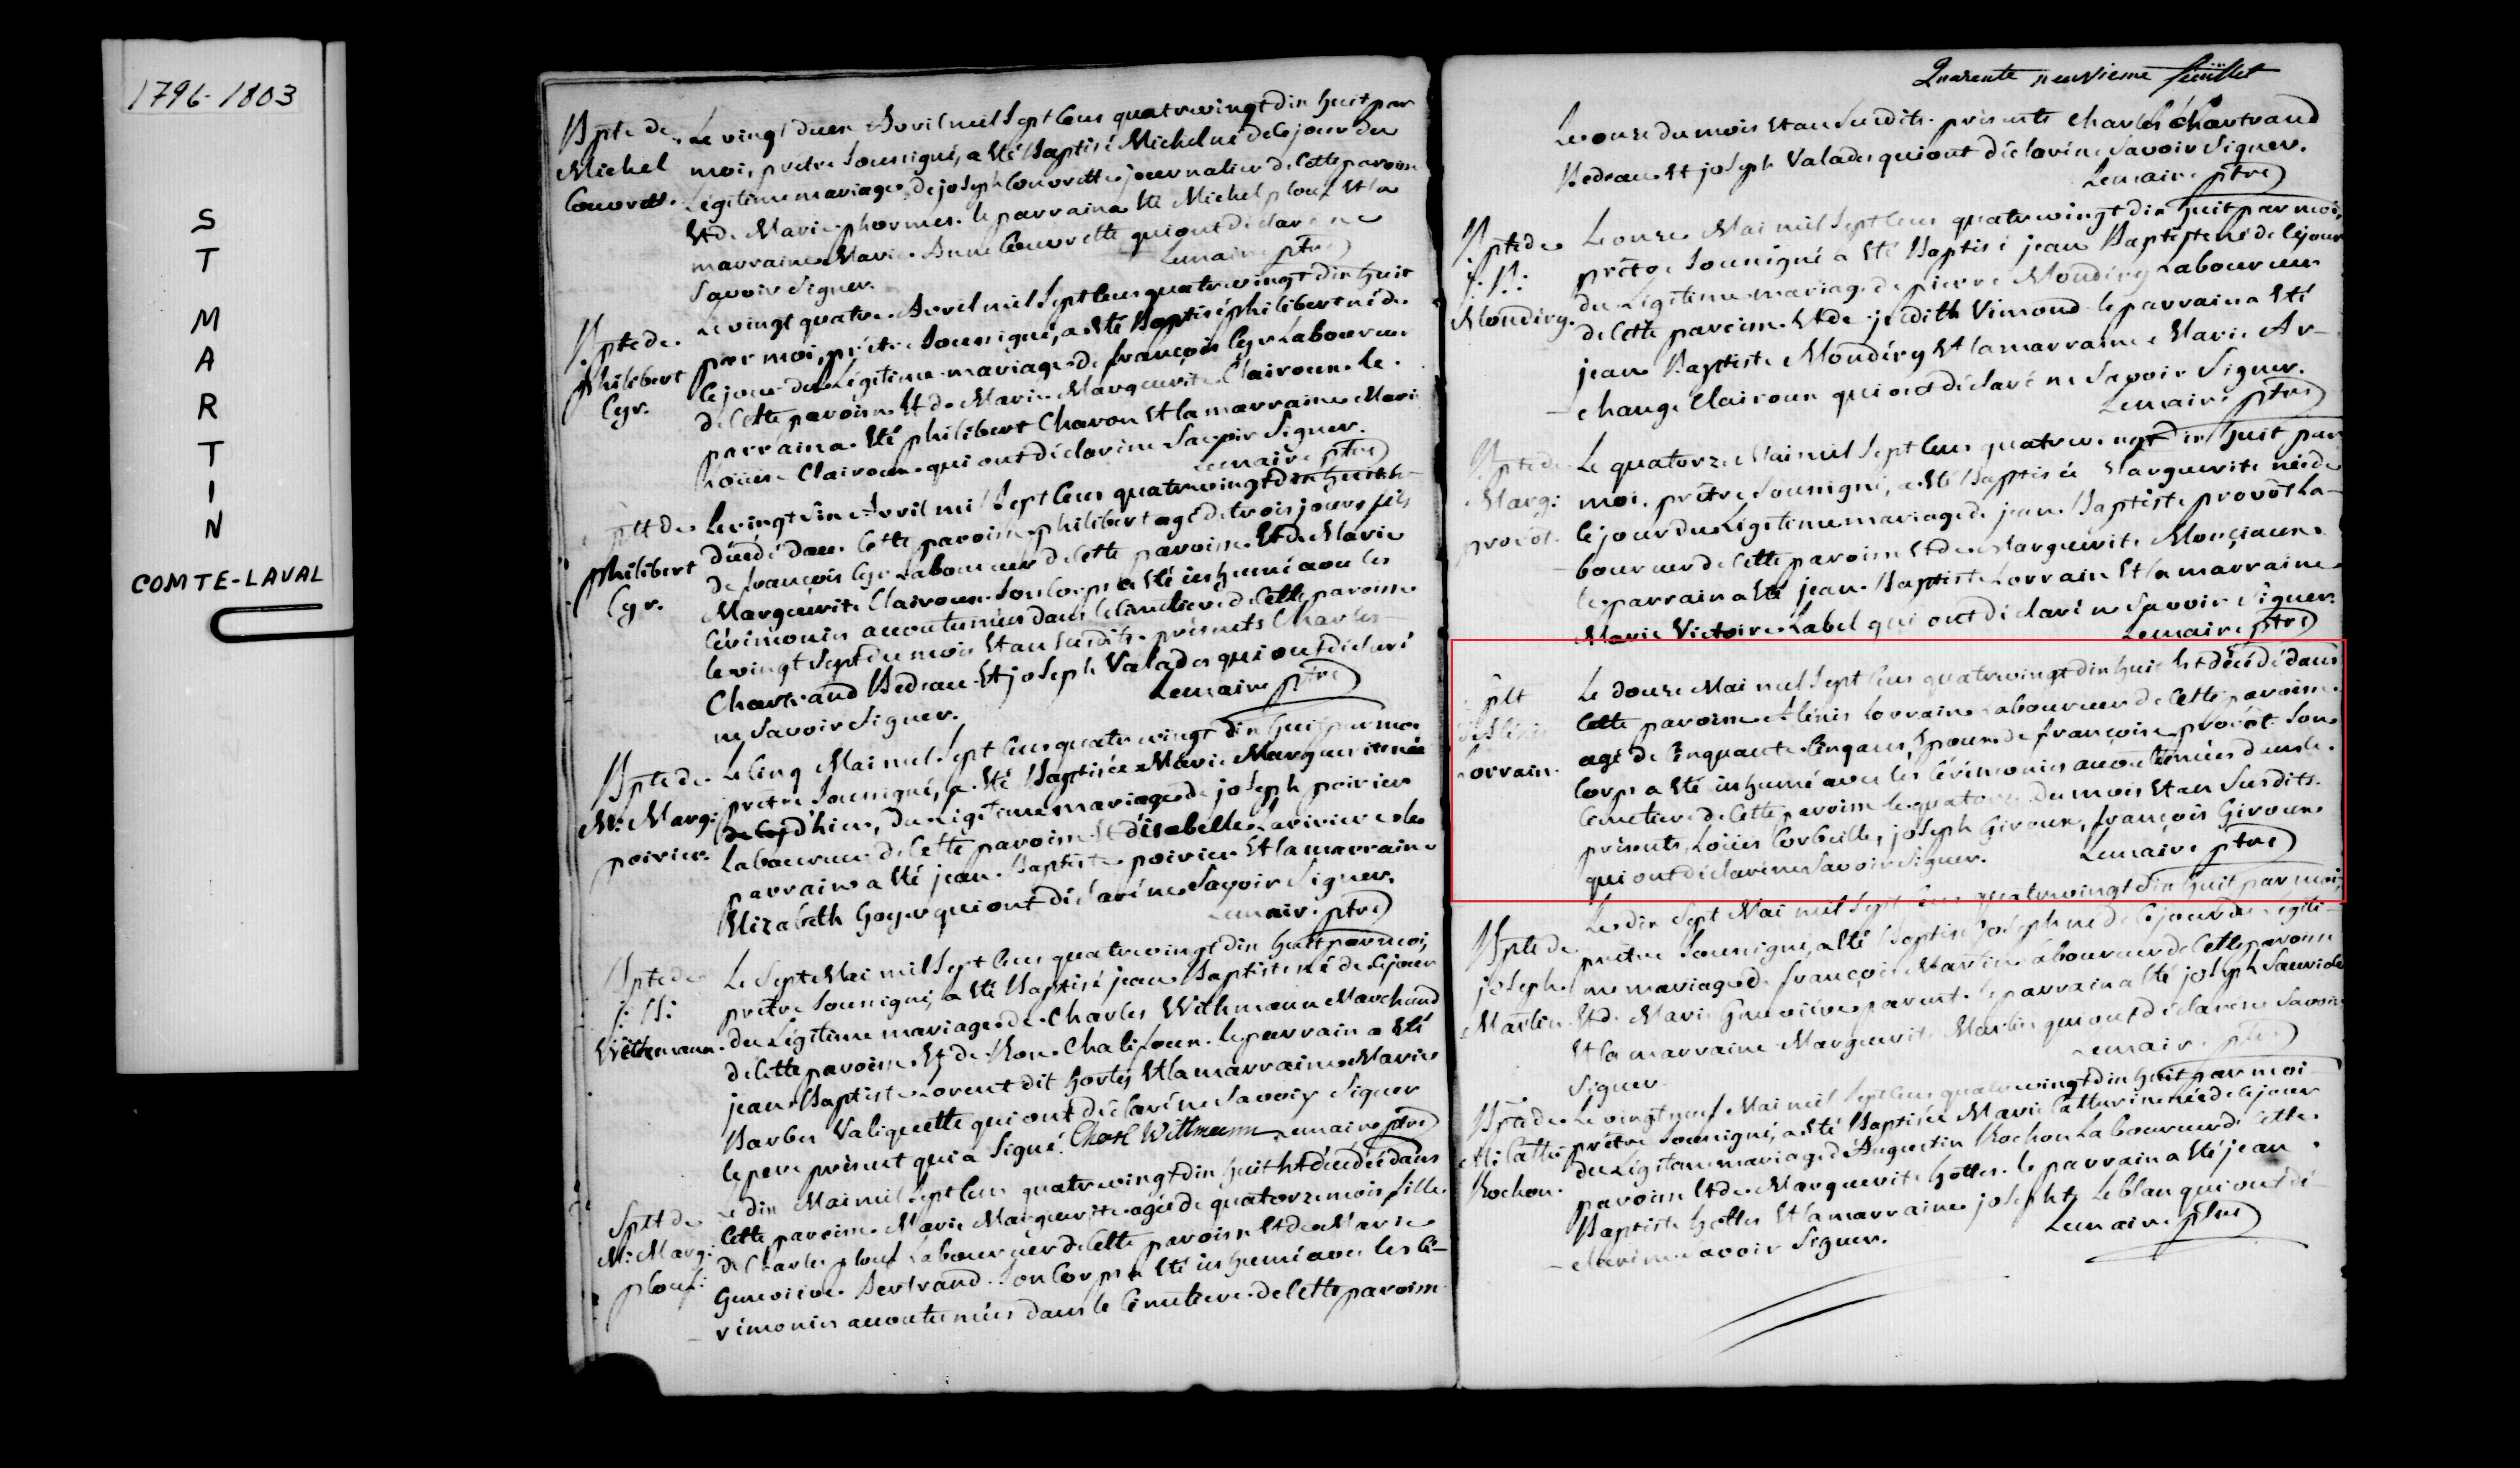 1796-1803
S
T
M
A
R
T
I
N
COMTE-LAVAL
Bpte de Le vingt deux Avril mil Sept Cens quatrevingt dix huit par
Michel moi, prêtre Soussigné, a Eté Baptisé Michel né de ce jour du
Couvrett. Légitime mariage de joseph Couvrette journalier de Cette paroisse
Et de Marie phormer. le parrain a Eté Michel plouf Et la
marraine Marie Anne Couvrette qui ont déclaré ne
Savoir Signer. Lemaire ptre
Bpte de Le vingt quatre Avril mil Sept Cens quatrevingt dix huit
philibert par moi, prêtre Soussigné, a Eté Baptisé philibert né de
Cyr. le jour du Légitime mariage de françois Cyr Laboureur
de Cette paroisse Et de Marie Marguerite Clairoux. le
parrain a Eté philibert Charon Et la marraine Marie
Loüise Clairoux qui ont déclaré ne Savoir Signer.
Lemaire ptre
plt de Le vingt Six Avril mil Sept Cens quatrevingt dix huit Est
philibert décédé dans Cette paroisse philibert agé de trois jours fils
Cyr. de françois Cyr Laboureur de Cette paroisse Et de Marie
Marguerite Clairoux. Son Corps a Eté inhumé avec les
Cérimonies accoutumées dans le Cimetiere de Cette paroisse
le vingt Sept du mois Et an Susdits. présents Charles
Chartrand Bedeau Et joseph Valade qui ont déclaré
ne Savoir Signer. Lemaire ptre
Bpte de Le Cinq Mai mil Sept Cens quatrevingt dix huit par moi
M: Marg: prêtre Soussigné, a Eté Baptisée Marie Marguerite née
poirier. d'hier, du Légitime mariage de joseph poirier
Laboureur de Cette paroisse Et d'isabelle Lariviere. le
parrain a Eté jean Baptiste poirier Et la marraine
Elizabeth Goyer qui ont déclaré ne Savoir Signer.
Lemaire ptre
Bpte de Le Sept Mai mil Sept Cens quatrevingt dix huit par moi,
j: B: prêtre Soussigné, a Eté Baptisé jean Baptiste né de ce jour
Withmann. du Légitime mariage de Charles Withmann Marchand
de Cette paroisse Et de Rose Chalifoux. le parrain a Eté
jean Baptiste Lorent dit hortÿ Et la marraine Marie
Barbe Valiquette qui ont déclaré ne Savoir Signer
le pere présent qui a Signé. Charl Wittmann Lemaire ptre
Splt de Le dix Mai mil Sept Cens quatrevingt dix huit Est décédée dans
M: Marg: Cette paroisse Marie Marguerite agée de quatorze mois fille
plouf: de Charles plouf Laboureur de Cette paroisse Et de Marie
Genevieve Bertrand. Son Corps a Eté inhumé avec les Cé-
rimonies accoutumées dans le Cimetiere de Cette paroisse
Quarente neuvieme feuillet
Le onze du mois Et an Susdits. présents Charles Chartrand
Bedeau Et joseph Valade qui ont déclaré ne Savoir Signer.
Lemaire ptre
Bpte de Le onze Mai mil Sept Cens quatrevingt dix huit par moi,
j. B. prêtre Soussigné a Eté Baptisé jean Baptiste né de Ce jour
Mondéry. du Légitime mariage de pierre Mondéry Laboureur
de Cette paroisse Et de judith Vimond. le parrain a Eté
jean Baptiste Mondéry Et la marraine Marie Ar-
change Clairoux qui ont déclaré ne Savoir Signer.
Lemaire ptre
Bpte de Le quatorze Mai mil Sept Cens quatrevingt dix huit par
Marg: moi prêtre Soussigné, a Eté Baptisée Marguerite née de
provôt. ce jour du Légitime mariage de jean Baptiste provôt La-
boureur de Cette paroisse Et de Marguerite Monciaux.
le parrain a Eté jean Baptiste Lorrain Et la marraine
Marie Victoire Label qui ont déclaré ne Savoir Signer.
Lemaire ptre
Splt Le douze Mai mil Sept Cens quatrevingt dix huit Est décédé dans
d'Aléxis Cette paroisse Aléxis Lorrain Laboureur de Cette paroisse
Lorrain. agé de Cinquante Cinq ans, Epoux de françoise provôt. Son
Corps a Eté inhumé avec les Cérimonies accoutumées dans le
Cimetiere de Cette paroisse le quatorze du mois Et an Susdits.
présents, Loüis Corbeille, joseph Giroux, françois Giroux
qui ont déclaré ne Savoir Signer. Lemaire ptre
Bpte de Le dix Sept Mai mil Sept Cens quatrevingt dix huit par moi,
joseph prêtre Soussigné, a Eté Baptisé joseph né de Ce jour du Légiti-
Martin. me mariage de françois Martin Laboureur de Cette paroisse
Et de Marie Genevieve parent. le parrain a Eté joseph Sauriole
Et la marraine Marguerite Martin qui ont déclaré ne Savoir
Signer. Lemaire ptre
Bpte de Le vingt neuf Mai mil Sept Cens quatrevingt dix huit par moi
M: Cath: prêtre Soussigné, a Eté Baptisée Marie Catherine née de ce jour
Rochon. du Légitime mariage d'Augustin Rochon Laboureur de Cette
paroisse Et de Marguerite hotter. le parrain a Eté jean
Baptiste hotter Et la marraine josephte Leblan qui ont dé-
claré ne Savoir Signer. Lemaire ptre